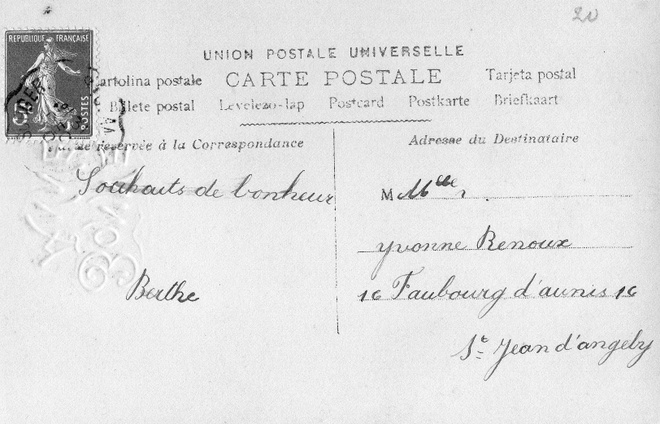 20
REPUBLIQUE FRANÇAISE
POSTES
UNION POSTALE UNIVERSELLE
Cartolina postale CARTE POSTALE Tarjeta postal
Billete postal Levelezo-lap Postcard Postkarte Briefkaart
réservée à la Correspondance
Adresse du Destinataire
Souhaits de bonheur
Berthe
M Mlle
Yvonne Renoux
16 Faubourg d'aunis 16
St Jean d'angely